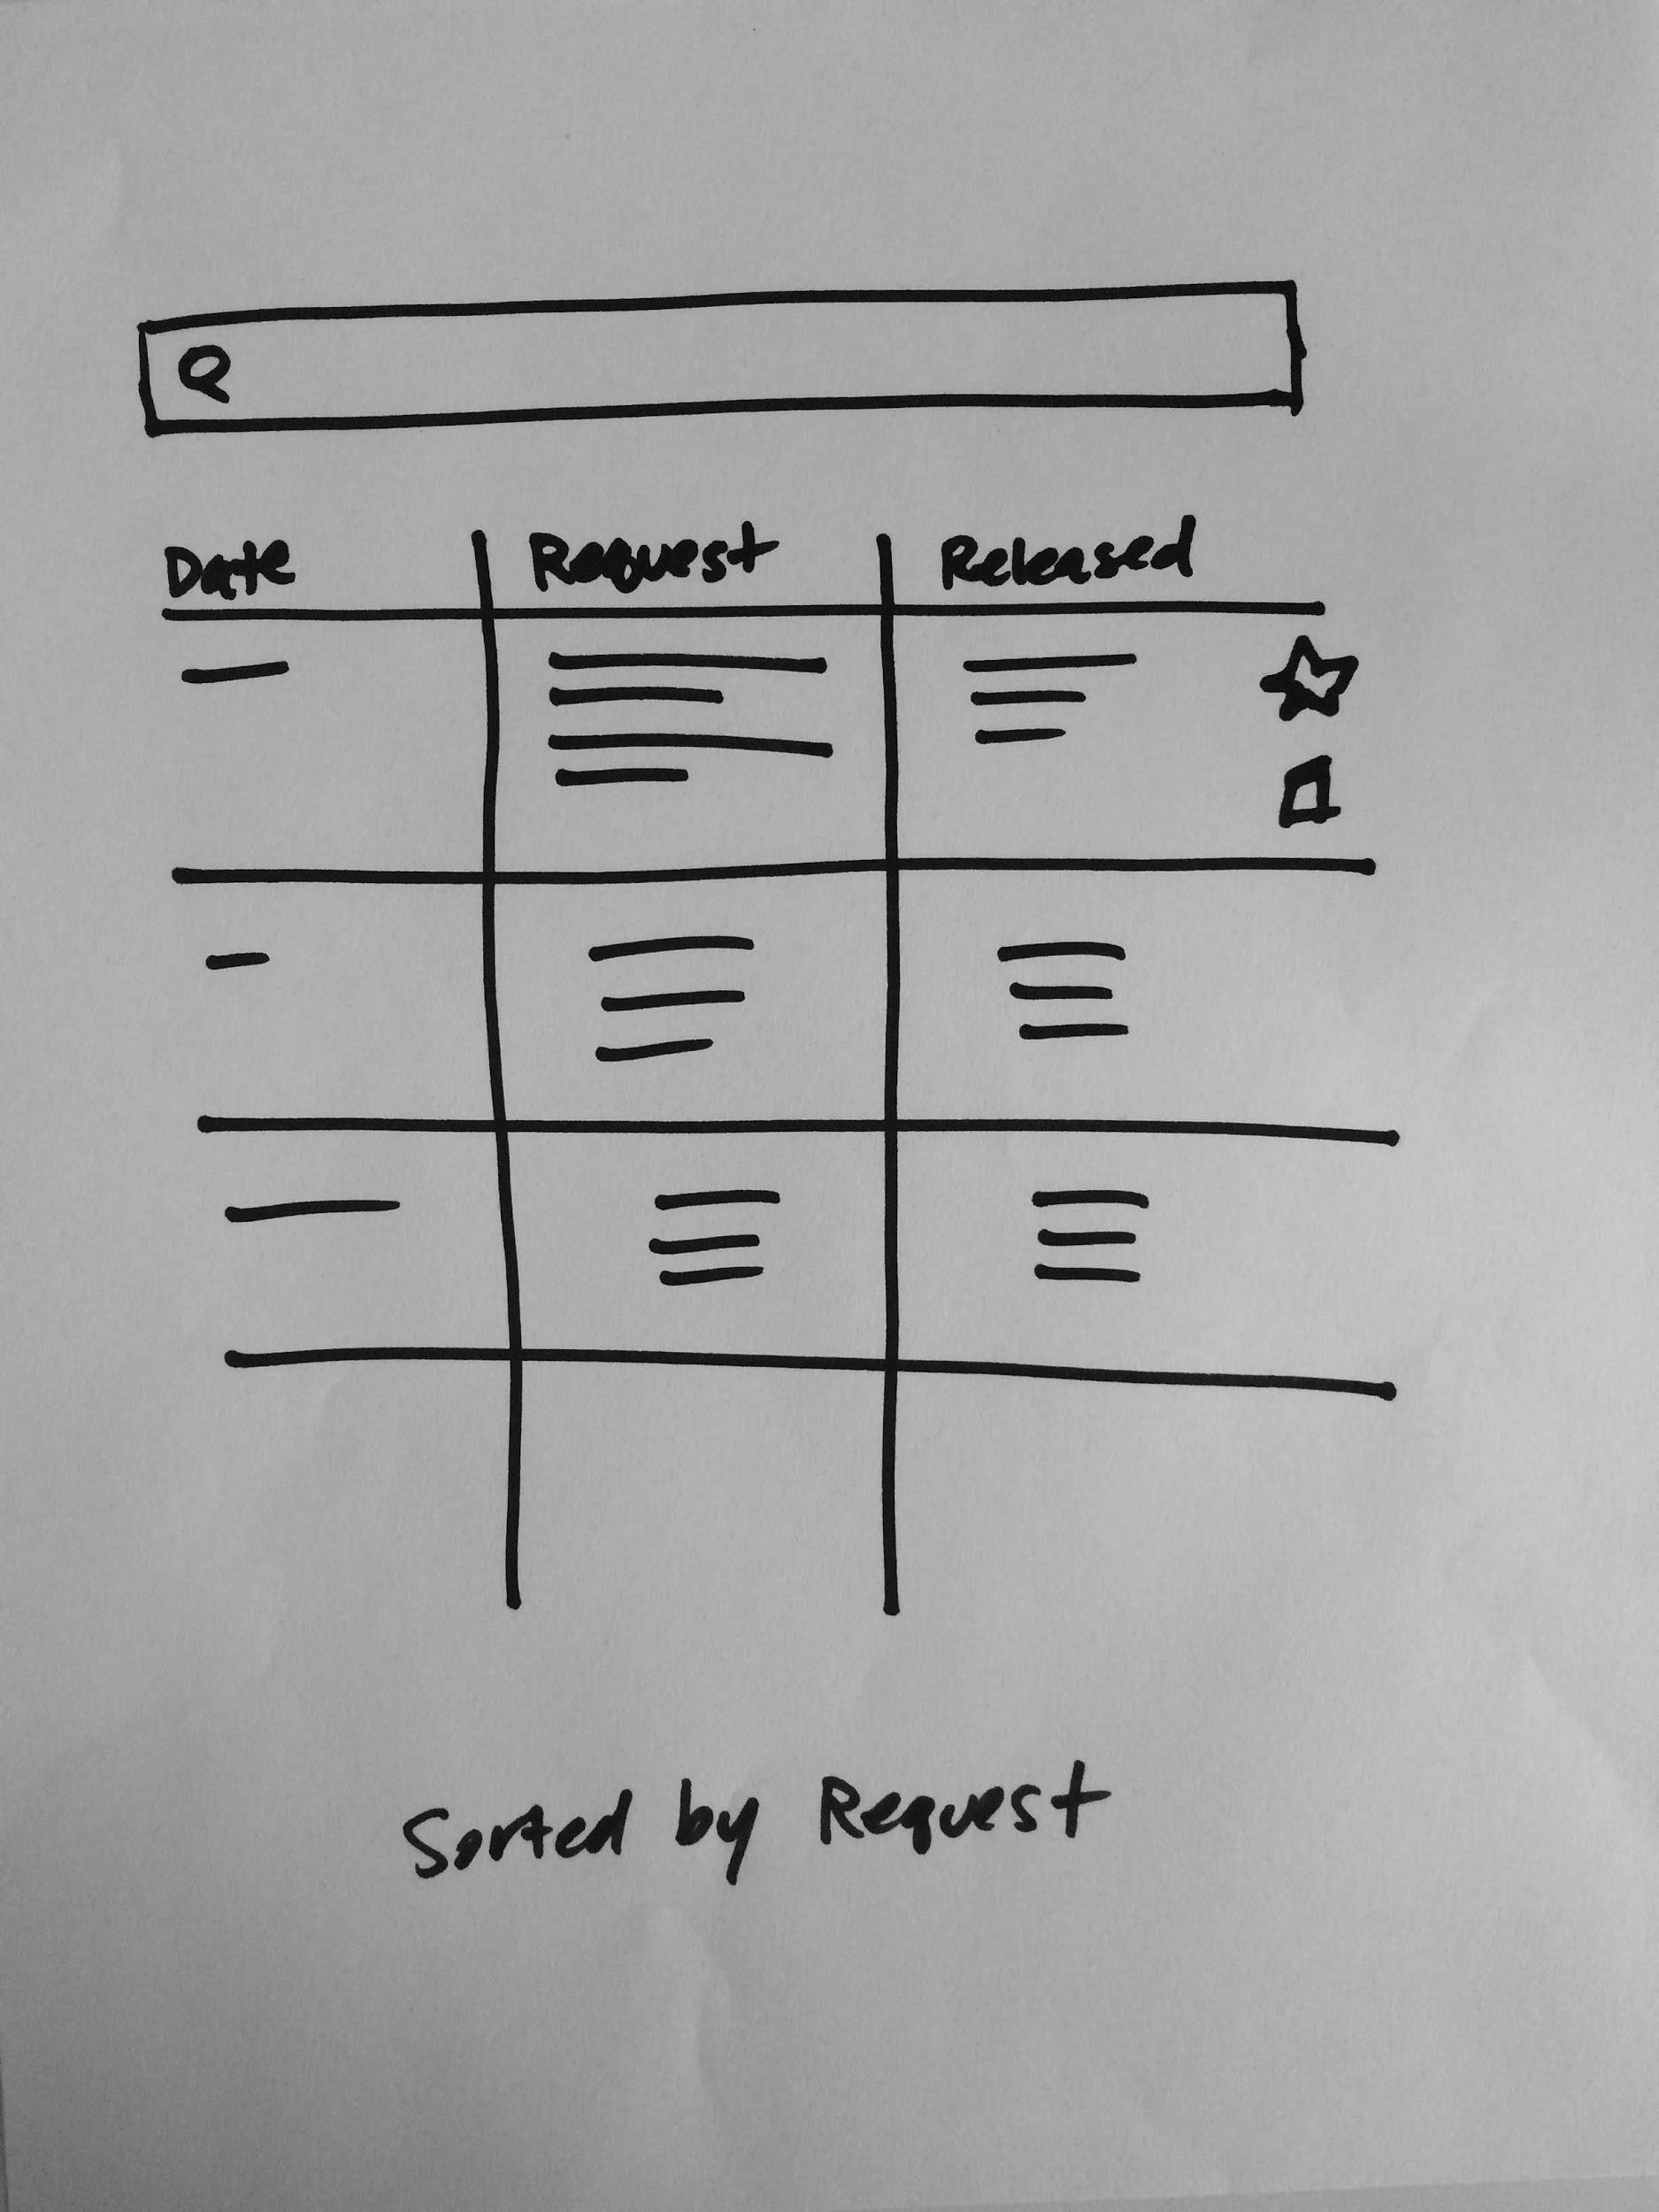 Date Request Released
Sorted by Request